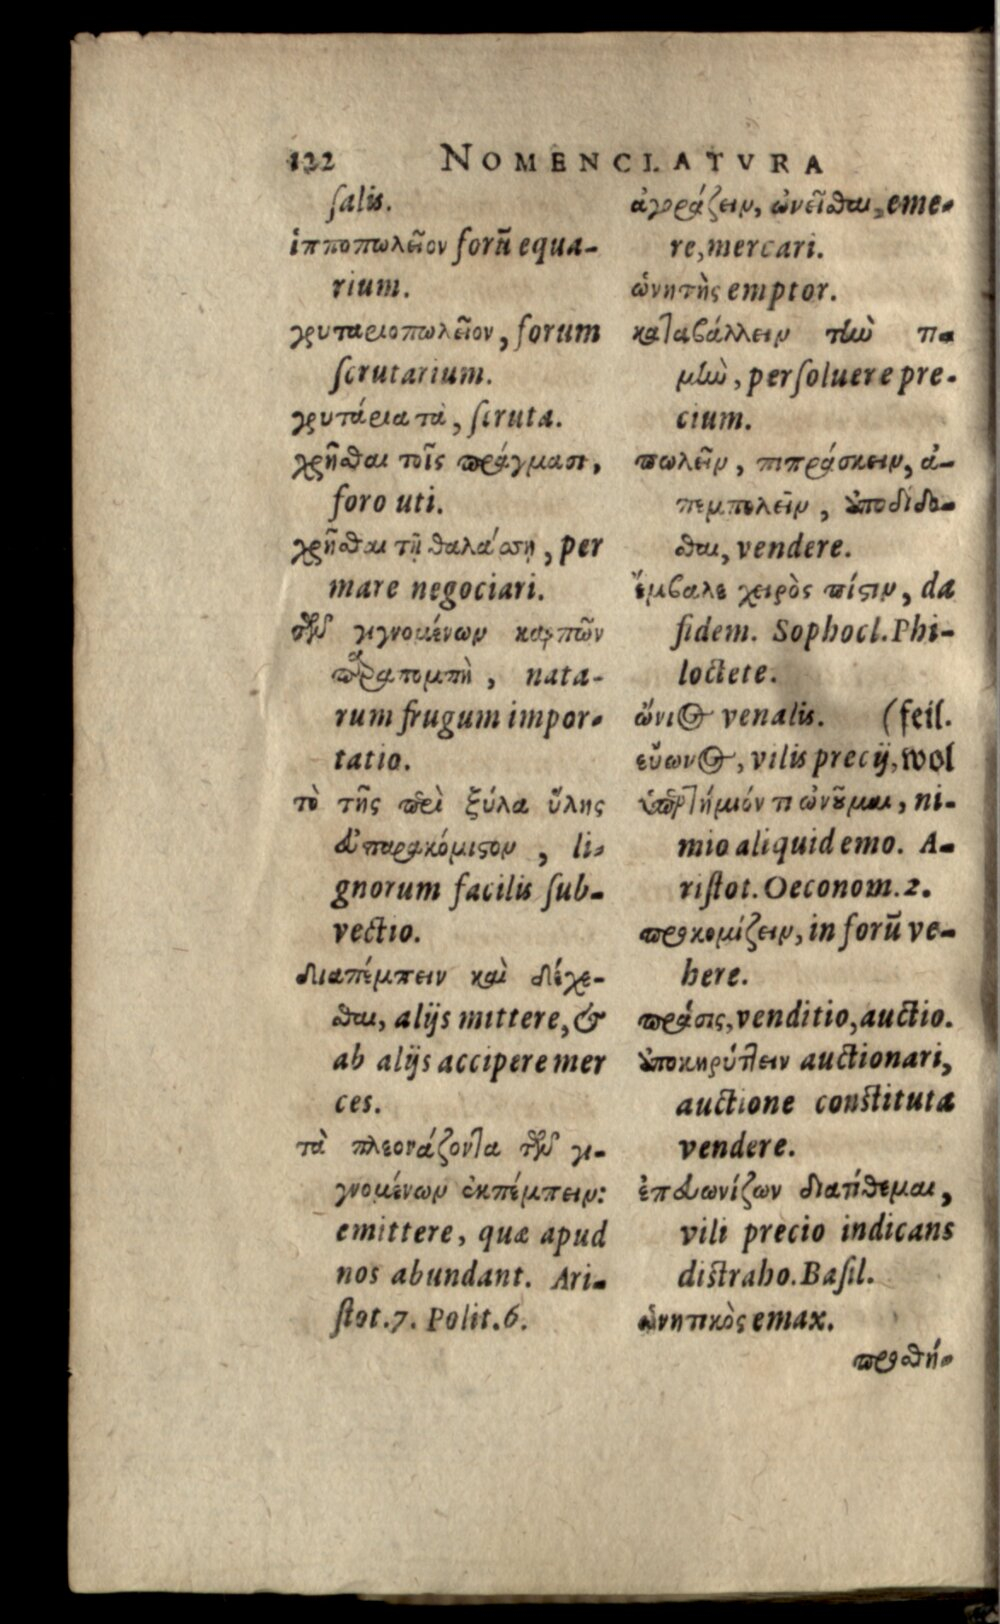 132 NOMENCLATVRA
salis.
ἱπποπωλεῖον forū equa-
rium.
γρυταριοπωλεῖον, forum
scrutarium.
γρυτάρια τὰ, scruta.
χρῆσθαι τοῖς πράγμασι,
foro uti.
χρῆσθαι τῇ θαλάσσῃ, per
mare negociari.
τῶν γιγνομένων καρπῶν
παραπομπὴ, nata-
rum frugum impor-
tatio.
τὸ τῆς περὶ ξύλα ὕλης
εὐπαρακόμιστον, li-
gnorum facilis sub-
vectio.
διαπέμπειν καὶ δέχε-
σθαι, alijs mittere, &
ab alijs accipere mer
ces.
τὰ πλεονάζοντα τῶν γι-
γνομένων ἐκπέμπειν:
emittere, quæ apud
nos abundant. Ari-
stot. 7. Polit. 6.
ἀγοράζειν, ὠνεῖσθαι, eme-
re, mercari.
ὠνητὴς emptor.
καταβάλλειν τὴν τι-
μὴν, persoluere pre-
cium.
πωλεῖν, πιπράσκειν, ἀ-
πεμπολεῖν, ἀποδίδο-
σθαι, vendere.
ἔμβαλε χειρὸς πίστιν, da
fidem. Sophocl. Phi-
loctete.
ὤνιος venalis. (feil.
εὔωνος, vilis precij, wol
ὑπερτήμιόν τι ὠνοῦμαι, ni-
mio aliquid emo. A-
ristot. Oeconom. 2.
προκομίζειν, in forū ve-
here.
πράσις, venditio, auctio.
ἀποκηρύττειν auctionari,
auctione constituta
vendere.
ἐπευωνίζων διατίθεμαι,
vili precio indicans
distraho. Basil.
ὠνητικὸς emax.
προσθή-